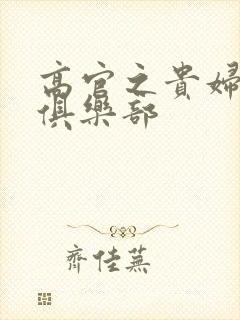 高官之貴婦
俱樂部
齊佳蕪